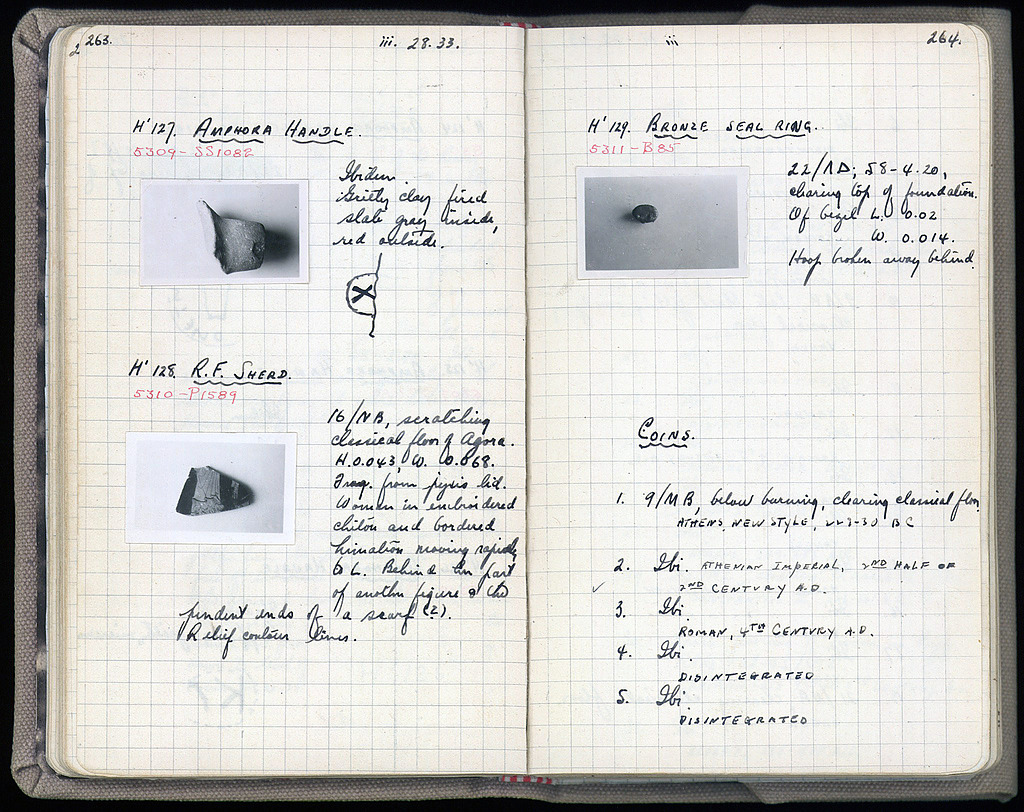 263.
iii. 28.33.
H' 127. AMPHORA HANDLE.
5309-SS1082
Ibidem.
Gritty clay fired
slate gray inside,
red outside.
X
H' 128. R.F. SHERD.
5310-P1589
16/NB, scratching
classical floor of Agora.
H. 0.043, W. 0.068.
Frag. from pyxis lid.
Woman in embroidered
chiton and bordered
himation moving rapidly
to L. Behind her part
of another figure & the
pendent ends of a scarf (?).
Relief contour lines.
iii
264.
H' 129. BRONZE SEAL RING.
5311-B85
22/ΛD; 58-4.20,
clearing top of foundation.
Of bezel L. 0.02
W. 0.014.
Hoop broken away behind.
COINS.
1. 9/MB, below burning, clearing classical floor.
ATHENS, NEW STYLE, 229-30 BC
2. Ibi. ATHENIAN IMPERIAL, 2ND HALF OF
✓ 2ND CENTURY A.D.
3. Ibi
ROMAN, 4TH CENTURY A.D.
4. Ibi.
DIDINTEGRATED
5. Ibi.
DISINTEGRATED